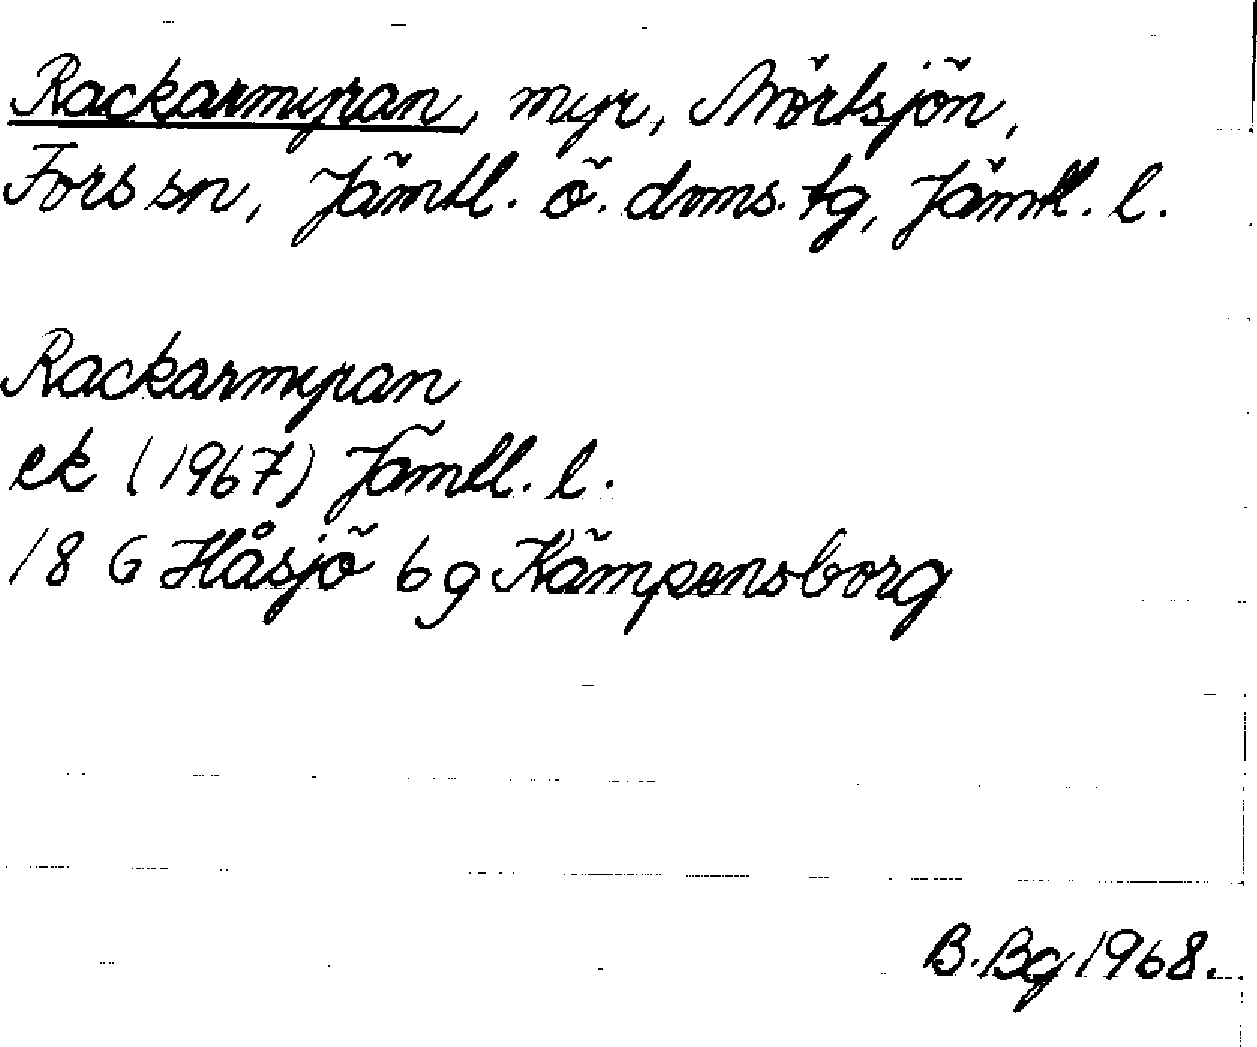 Rackarmyran, myr, Mörtsjön,
Fors sn, Jämtl. ö. doms. tg, Jämtl. l.
Rackarmyran
ek (1967) Jämtl. l.
18 G Håsjö 6g Kämpensborg
B. Bg 1968.